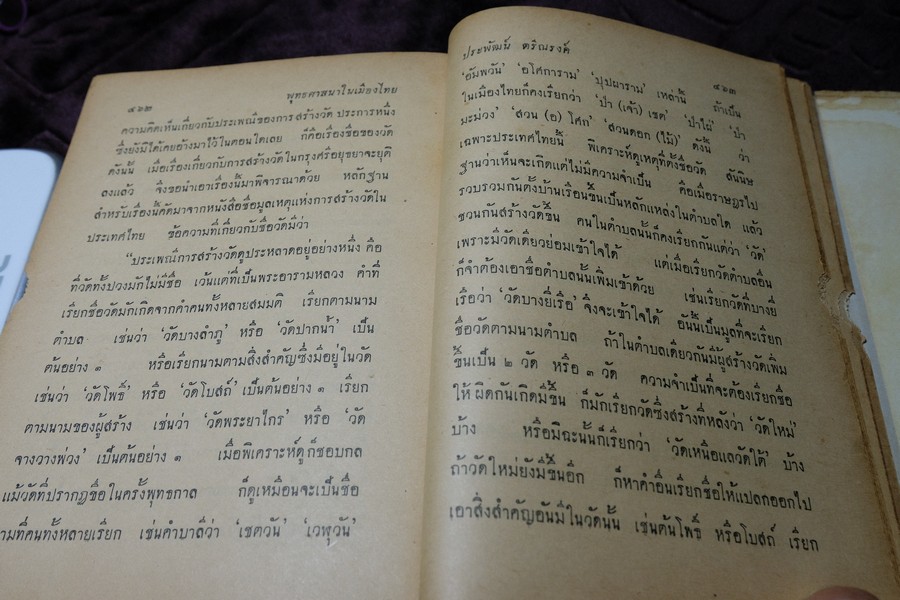 ๔๖๒
พุทธศาสนาในเมืองไทย
ความคิดเห็นเกี่ยวกับประเพณีของการสร้างวัด ประการหนึ่ง
ซึ่งยังมิได้เคยอ้างมาไว้ในตอนใดเลย ก็คือเรื่องชื่อของวัด
ดังนั้น เมื่อเรื่องเกี่ยวกับการสร้างวัดในกรุงศรีอยุธยาจะยุติ
ลงแล้ว จึงขอนำเอาเรื่องนี้มาพิจารณาด้วย หลักฐาน
สำหรับเรื่องนี้คัดมาจากหนังสือชื่อมูลเหตุแห่งการสร้างวัดใน
ประเทศไทย ข้อความที่เกี่ยวกับชื่อวัดมีว่า
“ประเพณีการสร้างวัดดูประหลาดอยู่อย่างหนึ่ง คือ
ที่วัดทั้งปวงมักไม่มีชื่อ เว้นแต่ที่เป็นพระอารามหลวง คำที่
เรียกชื่อวัดมักเกิดจากคำคนทั้งหลายสมมติ เรียกตามนาม
ตำบล เช่นว่า ‘วัดบางลำภู’ หรือ ‘วัดปากน้ำ’ เป็น
ต้นอย่าง ๑ หรือเรียกนามตามสิ่งสำคัญซึ่งมีอยู่ในวัด
เช่นว่า ‘วัดโพธิ์’ หรือ ‘วัดโบสถ์’ เป็นต้นอย่าง ๑ เรียก
ตามนามของผู้สร้าง เช่นว่า ‘วัดพระยาไกร’ หรือ ‘วัด
จางวางพ่วง’ เป็นต้นอย่าง ๑ เมื่อพิเคราะห์ดูก็ชอบกล
แม้วัดที่ปรากฏชื่อในครั้งพุทธกาล ก็ดูเหมือนจะเป็นชื่อ
ตามที่คนทั้งหลายเรียก เช่นคำบาลีว่า ‘เชตวัน’ ‘เวฬุวัน’
ประพัฒน์ ตริณรงค์
๔๖๓
‘อัมพวัน’ ‘อโศการาม’ ‘ปุปผาราม’ เหล่านี้ ถ้าเป็น
ในเมืองไทยก็คงเรียกว่า ‘ป่า (เจ้า) เชต’ ‘ป่าไผ่’ ‘ป่า
มะม่วง’ ‘สวน (อ) โศก’ ‘สวนดอก (ไม้)’ ดังนี้ ว่า
เฉพาะประเทศไทยนี้ พิเคราะห์ดูเหตุที่ตั้งชื่อวัด สันนิษ
ฐานว่าเห็นจะเกิดแต่ไม่มีความจำเป็น คือเมื่อราษฎรไป
รวบรวมกันตั้งบ้านเรือนขึ้นเป็นหลักแหล่งในตำบลใด แล้ว
ชวนกันสร้างวัดขึ้น คนในตำบลนั้นก็คงเรียกกันแต่ว่า ‘วัด’
เพราะมีวัดเดียวย่อมเข้าใจได้ แต่เมื่อเรียกวัดตำบลอื่น
ก็จำต้องเอาชื่อตำบลนั้นเพิ่มเข้าด้วย เช่นเรียกวัดที่บางยี่
เรือว่า ‘วัดบางยี่เรือ’ จึงจะเข้าใจได้ อันนี้เป็นมูลที่จะเรียก
ชื่อวัดตามนามตำบล ถ้าในตำบลเดียวกันมีผู้สร้างวัดเพิ่ม
ขึ้นเป็น ๒ วัด หรือ ๓ วัด ความจำเป็นที่จะต้องเรียกชื่อ
ให้ผิดกันเกิดมีขึ้น ก็มักเรียกวัดซึ่งสร้างที่หลังว่า ‘วัดใหม่’
บ้าง หรือมิฉะนั้นก็เรียกว่า ‘วัดเหนือแลวัดใต้’ บ้าง
ถ้าวัดใหม่ยังมีขึ้นอีก ก็หาคำอื่นเรียกชื่อให้แปลกออกไป
เอาสิ่งสำคัญอันมีในวัดนั้น เช่นต้นโพธิ์ หรือโบสถ์ เรียก